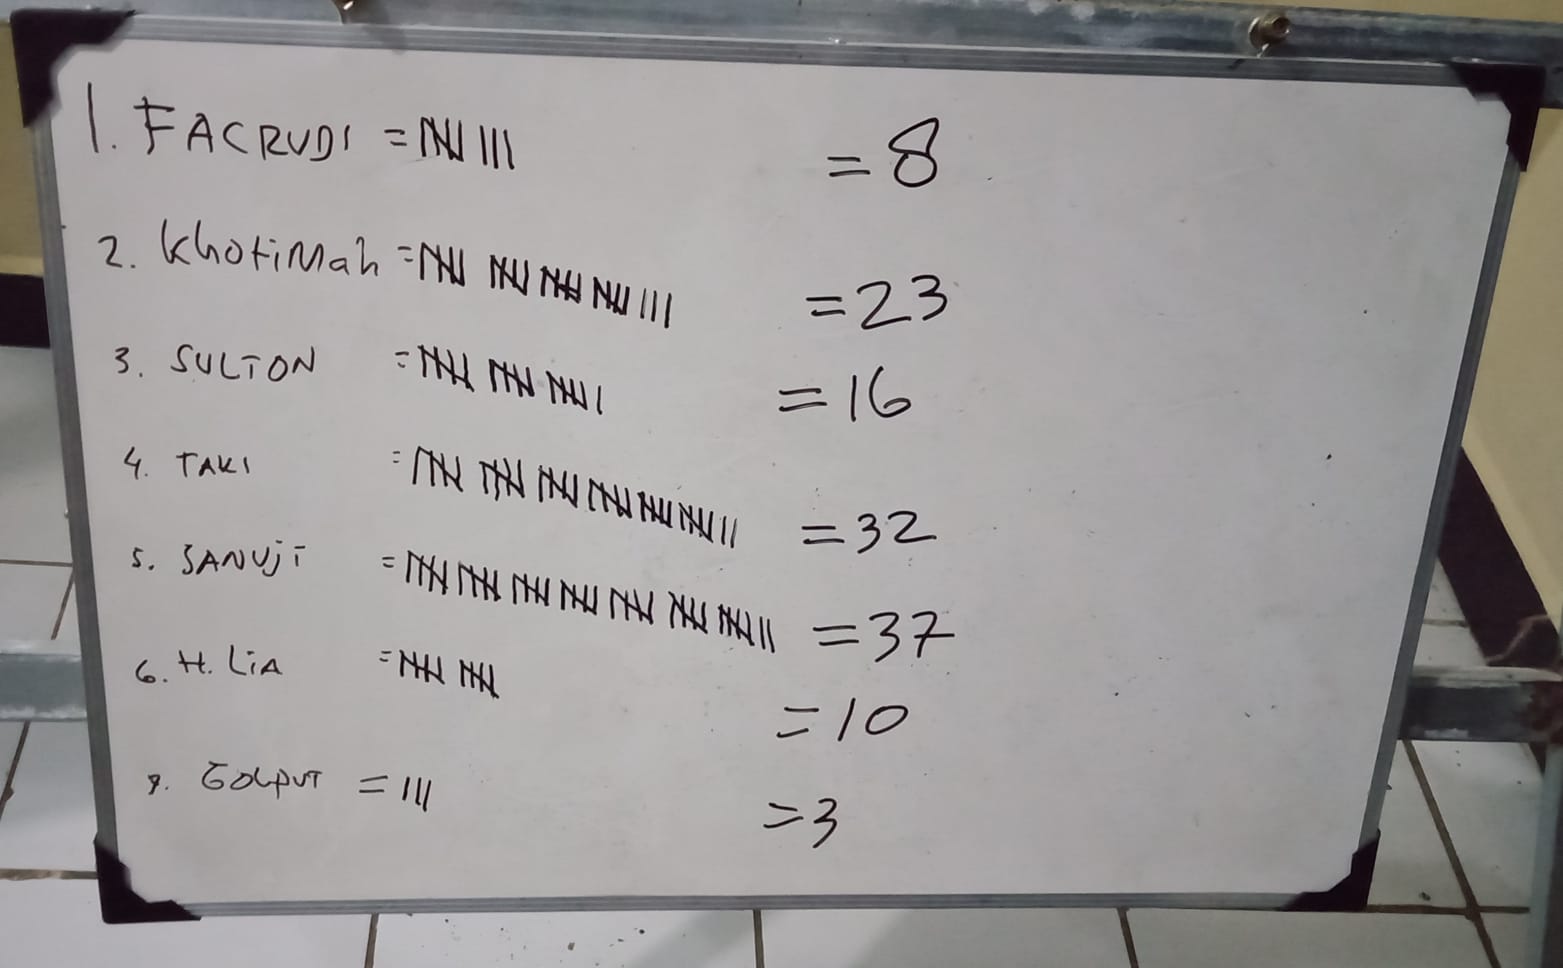 1. FACRUDI = 𝍸 III = 8
2. KhotiMah = 𝍸 𝍸 𝍸 𝍸 III = 23
3. SULTON = 𝍸 𝍸 𝍸 I = 16
4. TAKI = 𝍸 𝍸 𝍸 𝍸 𝍸 𝍸 II = 32
5. SANUji = 𝍸 𝍸 𝍸 𝍸 𝍸 𝍸 𝍸 II = 37
6. H. LiA = 𝍸 𝍸 = 10
7. GOLPUT = III = 3